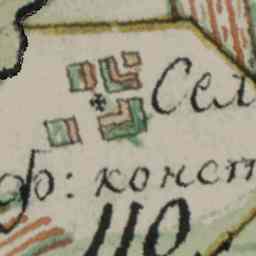 Сел
ф: конст
110